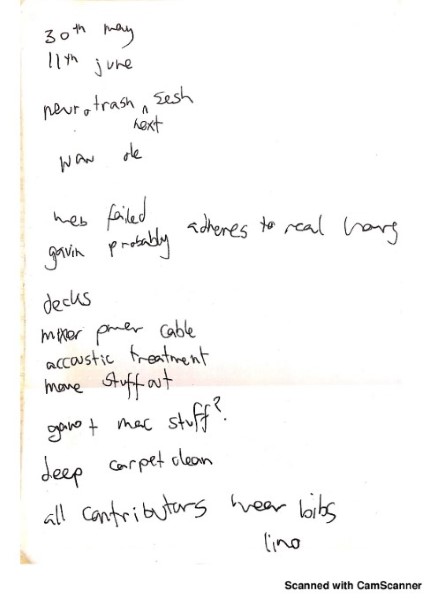 30th may
11th june
neurotrash ^ sesh
next
failed
gavin probably adheres to real
decks
mixer power cable
accoustic treatment
move stuff out
+ mac stuff?
deep carpet clean
all contributors wear bibs
lino
Scanned with CamScanner